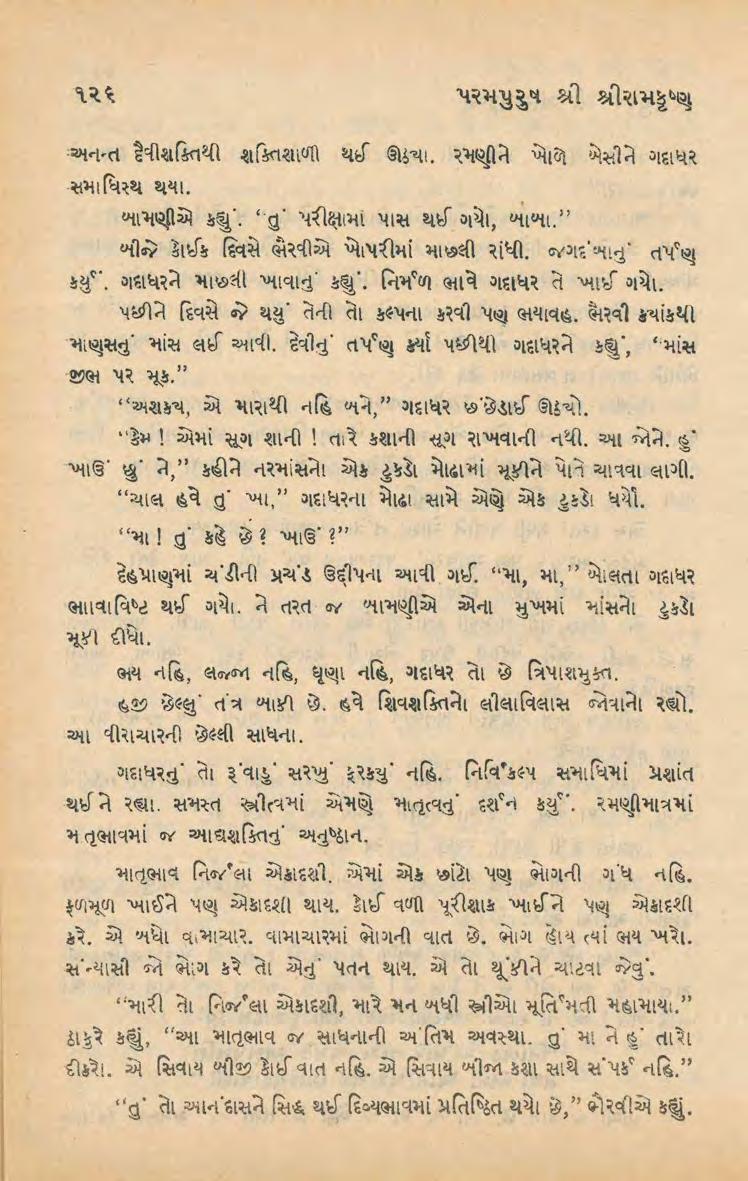 ૧૨૬ પરમપુરુષ શ્રી શ્રીરામકૃષ્ણ
અનન્ત દૈવીશક્તિથી શક્તિશાળી થઈ ઊઠ્યા. રમણીને ખોળે બેસીને ગદાધર
સમાધિસ્થ થયા.
બામણીએ કહ્યું. “તું પરીક્ષામાં પાસ થઈ ગયો, બાબા.”
બીજે કોઈક દિવસે ભૈરવીએ ખોપરીમાં માછલી રાંધી. જગદંબાનું તર્પણ
કર્યું. ગદાધરને માછલી ખાવાનું કહ્યું. નિર્મળ ભાવે ગદાધર તે ખાઈ ગયો.
પછીને દિવસે જે થયું તેની તો કલ્પના કરવી પણ ભયાવહ. ભૈરવી ક્યાંકથી
માણસનું માંસ લઈ આવી. દેવીનું તર્પણ કર્યા પછીથી ગદાધરને કહ્યું, “માંસ
જીભ પર મૂક.”
“અશક્ય, એ મારાથી નહિ બને,” ગદાધર છંછેડાઈ ઊઠ્યો.
“કેમ ! એમાં સૂગ શાની ! તારે કશાની સૂગ રાખવાની નથી. આ જોને. હું
ખાઉં છું ને,” કહીને નરમાંસનો એક ટુકડો મોઢામાં મૂકીને પોતે ચાવવા લાગી.
“ચાલ હવે તું ખા,” ગદાધરના મોઢા સામે એણે એક ટુકડો ધર્યો.
“મા ! તું કહે છે ? ખાઉં ?”
દેહપ્રાણમાં ચંડીની પ્રચંડ ઉદ્દીપના આવી ગઈ. “મા, મા,” બોલતા ગદાધર
ભાાવાવિષ્ટ થઈ ગયો. ને તરત જ બામણીએ એના મુખમાં માંસનો ટુકડો
મૂકી દીધો.
ભય નહિ, લજ્જા નહિ, ઘૃણા નહિ, ગદાધર તો છે ત્રિપાશમુક્ત.
હજી છેલ્લું તંત્ર બાકી છે. હવે શિવશક્તિનો લીલાવિલાસ જોવાનો રહ્યો.
આ વીરાચારની છેલ્લી સાધના.
ગદાધરનું તો રૂંવાડું સરખું ફરક્યું નહિ. નિર્વિકલ્પ સમાધિમાં પ્રશાંત
થઈને રહ્યા. સમસ્ત સ્ત્રીત્વમાં એમણે માતૃત્વનું દર્શન કર્યું. રમણીમાત્રમાં
મતૃભાવમાં જ આદ્યશક્તિનું અનુષ્ઠાન.
માતૃભાવ નિર્જલા એકાદશી. એમાં એક છાંટો પણ ભોગની ગંધ નહિ.
ફળમૂળ ખાઈને પણ એકાદશી થાય. કોઈ વળી પૂરીશાક ખાઈને પણ એકાદશી
કરે. એ બધો વામાચાર. વામાચારમાં ભોગની વાત છે. ભોગ હોય ત્યાં ભય ખરો.
સંન્યાસી જો ભોગ કરે તો એનું પતન થાય. એ તો થૂંકીને ચાટવા જેવું.
“મારી તો નિર્જલા એકાદશી, મારે મન બધી સ્ત્રીઓ મૂર્તિમતી મહામાયા.”
ઠાકુરે કહ્યું, “આ માતૃભાવ જ સાધનાની અંતિમ અવસ્થા. તું મા ને હું તારો
દીકરો. એ સિવાય બીજી કોઈ વાત નહિ. એ સિવાય બીજા કશા સાથે સંપર્ક નહિ.”
“તું તો આનંદાસને સિદ્ધ થઈ દિવ્યભાવમાં પ્રતિષ્ઠિત થયો છે,” ભૈરવીએ કહ્યું.